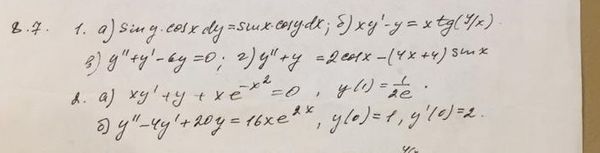 8.7. 1. а) sin y · cos x dy = sin x · cos y dx; б) xy' - y = x tg(y/x).
в) y'' + y' - 6y = 0; г) y'' + y = 2cos x - (4x+4) sin x
2. а) xy' + y + x e^{-x^2} = 0, y(1) = 1/2e.
б) y'' - 4y' + 20y = 16x e^{2x}, y(0) = 1, y'(0) = 2.